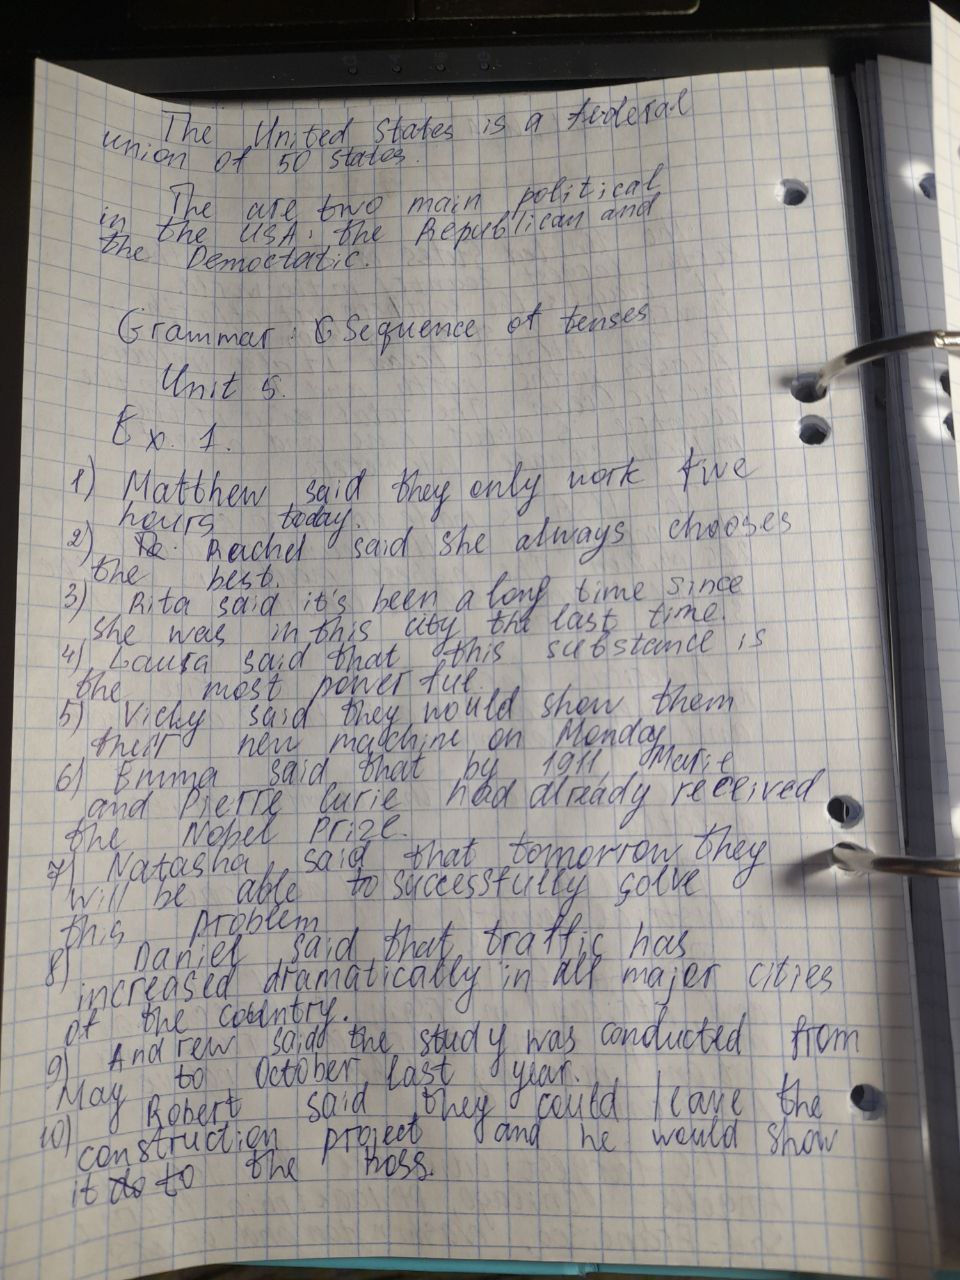 The United States is a federal
union of 50 states.
The are two main political
in the USA: the Republican and
the Democtatic.
Grammar: Sequence of tenses
Unit 5.
Ex. 1.
1) Matthew said they only work five
hours today.
2) Rachel said she always chooses
the best.
3) Rita said it's been a long time since
she was in this city the last time.
4) Laura said that this substance is
the most powerful
5) Vicky said they would show them
their new machine on Monday
6) Emma said that by 1911, Marie
and Pierre Curie had already received
the Nobel Prize.
7) Natasha said that tomorrow they
will be able to successfully solve
this problem
8) Daniel said that traffic has
increased dramatically in all major cities
of the country.
9) Andrew said the study was conducted from
May to October last year.
10) Robert said they could leave the
construction project and he would show
it to the boss.